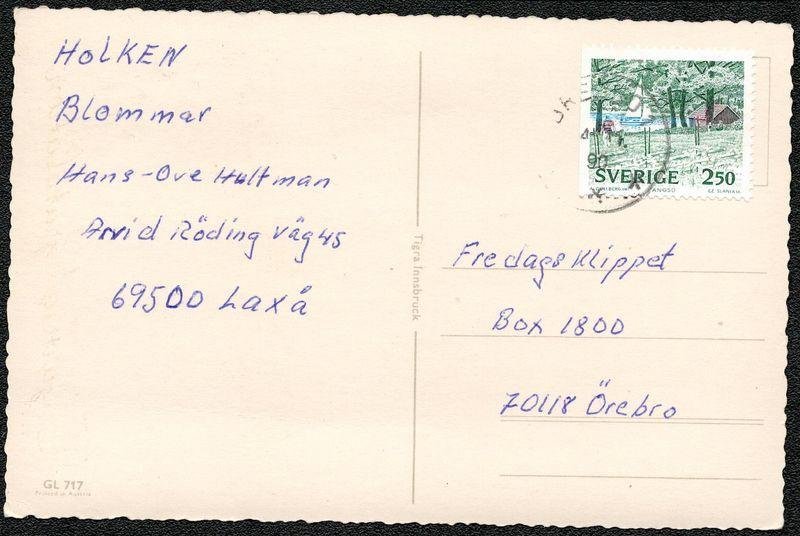 HOLKEN
Blommar
Hans-Ove Hultman
Arvid Röding väg 45
69500 Laxå
GL 717
Printed in Austria
Tigra Innsbruck
SVERIGE 250
ÄNGSÖ
CZ. SLANIA SC
90
Fredagsklippet
Box 1800
70118 Örebro